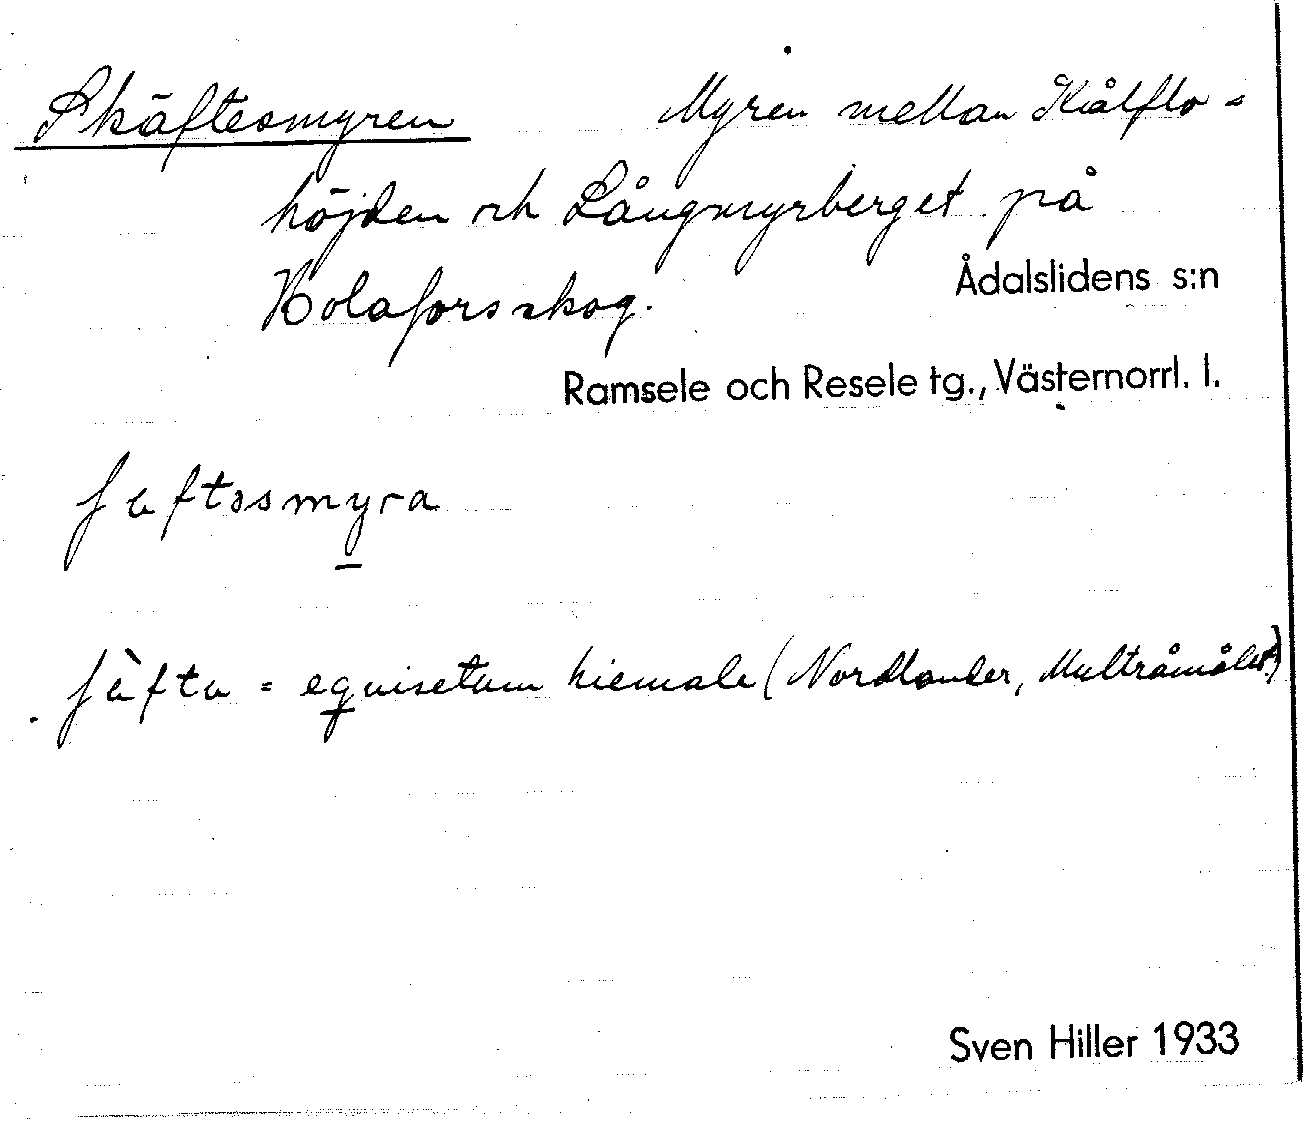 Skäftesmyren Myren mellan Kålflo-
höjden och Långmyrberget på
Holaforsskog.
Ådalslidens s:n
Ramsele och Resele tg., Västernorrl. l.
ʃɐftəsmyra
ʃɐ̀ftɐ = equisetum hiemale (Nordlander, Multråmålet)
Sven Hiller 1933